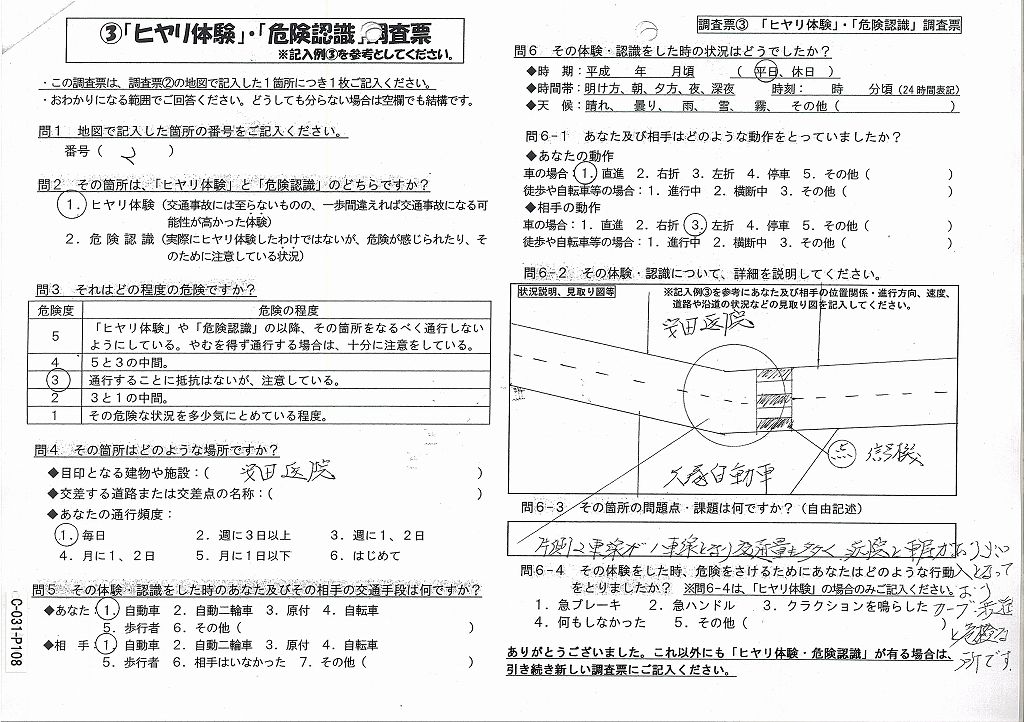 ③「ヒヤリ体験」・「危険認識」調査票
※記入例③を参考としてください。
・この調査票は、調査票②の地図で記入した１箇所につき１枚ご記入ください。
・おわかりになる範囲でご回答ください。どうしても分らない場合は空欄でも結構です。
問１ 地図で記入した箇所の番号をご記入ください。
番号（ 2 ）
問２ その箇所は、「ヒヤリ体験」と「危険認識」のどちらですか？
１．ヒヤリ体験（交通事故には至らないものの、一歩間違えれば交通事故になる可
能性が高かった体験）
２．危険認識（実際にヒヤリ体験したわけではないが、危険が感じられたり、そ
のために注意している状況）
問３ それはどの程度の危険ですか？
危険度 危険の程度
５ 「ヒヤリ体験」や「危険認識」の以降、その箇所をなるべく通行しない
ようにしている。やむを得ず通行する場合は、十分に注意をしている。
４ ５と３の中間。
３ 通行することに抵抗はないが、注意している。
２ ３と１の中間。
１ その危険な状況を多少気にとめている程度。
問４ その箇所はどのような場所ですか？
◆目印となる建物や施設：（ 安田医院 ）
◆交差する道路または交差点の名称：（ ）
◆あなたの通行頻度：
１．毎日 ２．週に３日以上 ３．週に１、２日
４．月に１、２日 ５．月に１日以下 ６．はじめて
問５ その体験・認識をした時のあなた及びその相手の交通手段は何ですか？
◆あなた：１．自動車 ２．自動二輪車 ３．原付 ４．自転車
５．歩行者 ６．その他（ ）
◆相 手：１．自動車 ２．自動二輪車 ３．原付 ４．自転車
５．歩行者 ６．相手はいなかった ７．その他（ ）
C-031-P108
調査票③ 「ヒヤリ体験」・「危険認識」調査票
問６ その体験・認識をした時の状況はどうでしたか？
◆時 期：平成 年 月頃 （ 平日、休日 ）
◆時間帯：明け方、朝、夕方、夜、深夜 時刻： 時 分頃（24時間表記）
◆天 候：晴れ、 曇り、 雨、 雪、 霧、 その他（ ）
問６-１ あなた及び相手はどのような動作をとっていましたか？
◆あなたの動作
車の場合：１．直進 ２．右折 ３．左折 ４．停車 ５．その他（ ）
徒歩や自転車等の場合：１．進行中 ２．横断中 ３．その他（ ）
◆相手の動作
車の場合：１．直進 ２．右折 ３．左折 ４．停車 ５．その他（ ）
徒歩や自転車等の場合：１．進行中 ２．横断中 ３．その他（ ）
問６-２ その体験・認識について、詳細を説明してください。
状況説明、見取り図等 ※記入例③を参考にあなた及び相手の位置関係・進行方向、速度、
道路や沿道の状況などの見取り図を記入してください。
安田医院
点 信号機
大塚自動車
問６-３ その箇所の問題点・課題は何ですか？（自由記述）
片側２車線が１車線となり交通量も多く 病院と車屋が
カーブ
所です。
問６-４ その体験をした時、危険をさけるためにあなたはどのような行動
をとりましたか？ ※問６-４は、「ヒヤリ体験」の場合のみご記入ください。
１．急ブレーキ ２．急ハンドル ３．クラクションを鳴らした
４．何もしなかった ５．その他（ ）
ありがとうございました。これ以外にも「ヒヤリ体験・危険認識」が有る場合は、
引き続き新しい調査票にご記入ください。